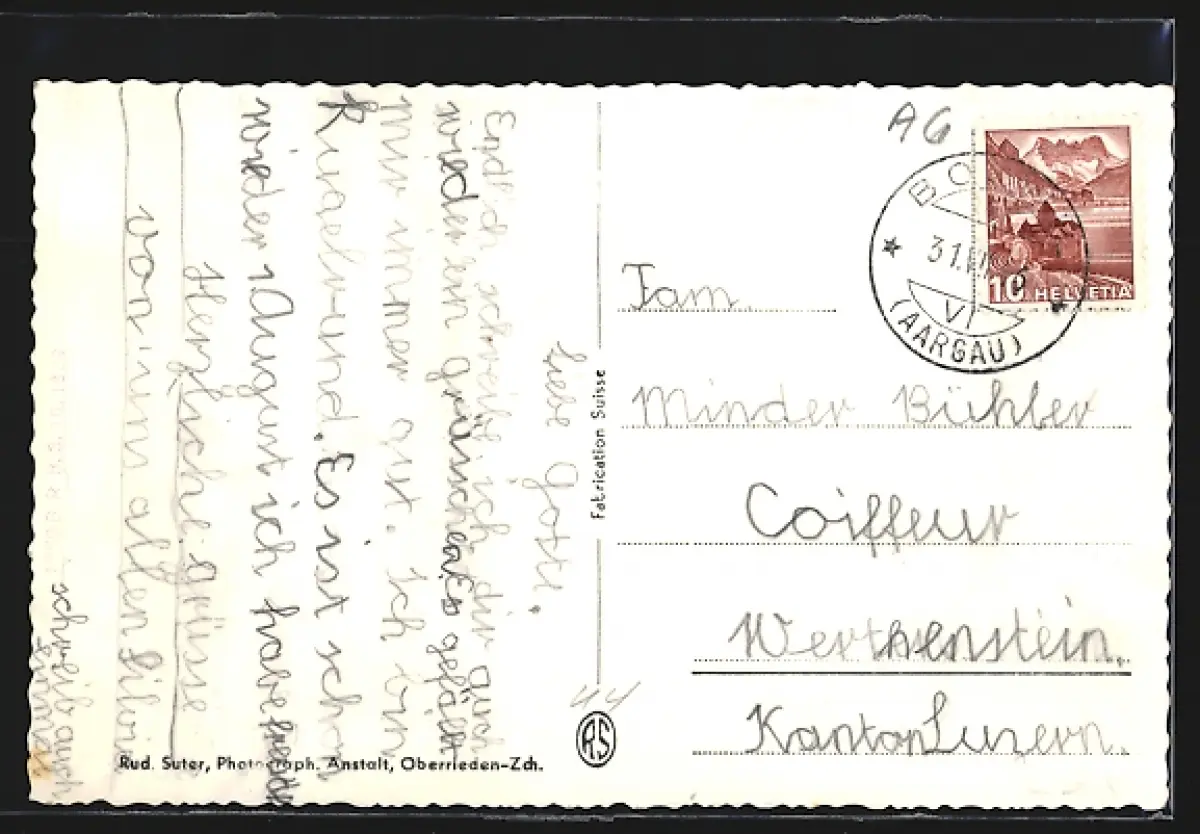 Liebe Gotti,
Endlich schreibe ich dir auch
wieder ein grüsschen Es gefällt
mir immer gut. Ich bin
Kugelrund. Es ist schon
wieder 1 August ich habe
Herzlische grüsse
von uns allen Silvia
schreib auch
einmal
Rud. Suter, Photograph. Anstalt, Oberrieden-Zch.
Fabrication Suisse
RS
44
AG
31.
VI
(AARGAU)
10 HELVETIA
Fam.
Minder Bühler
Coiffeur
Werthenstein.
Kanton Luzern.